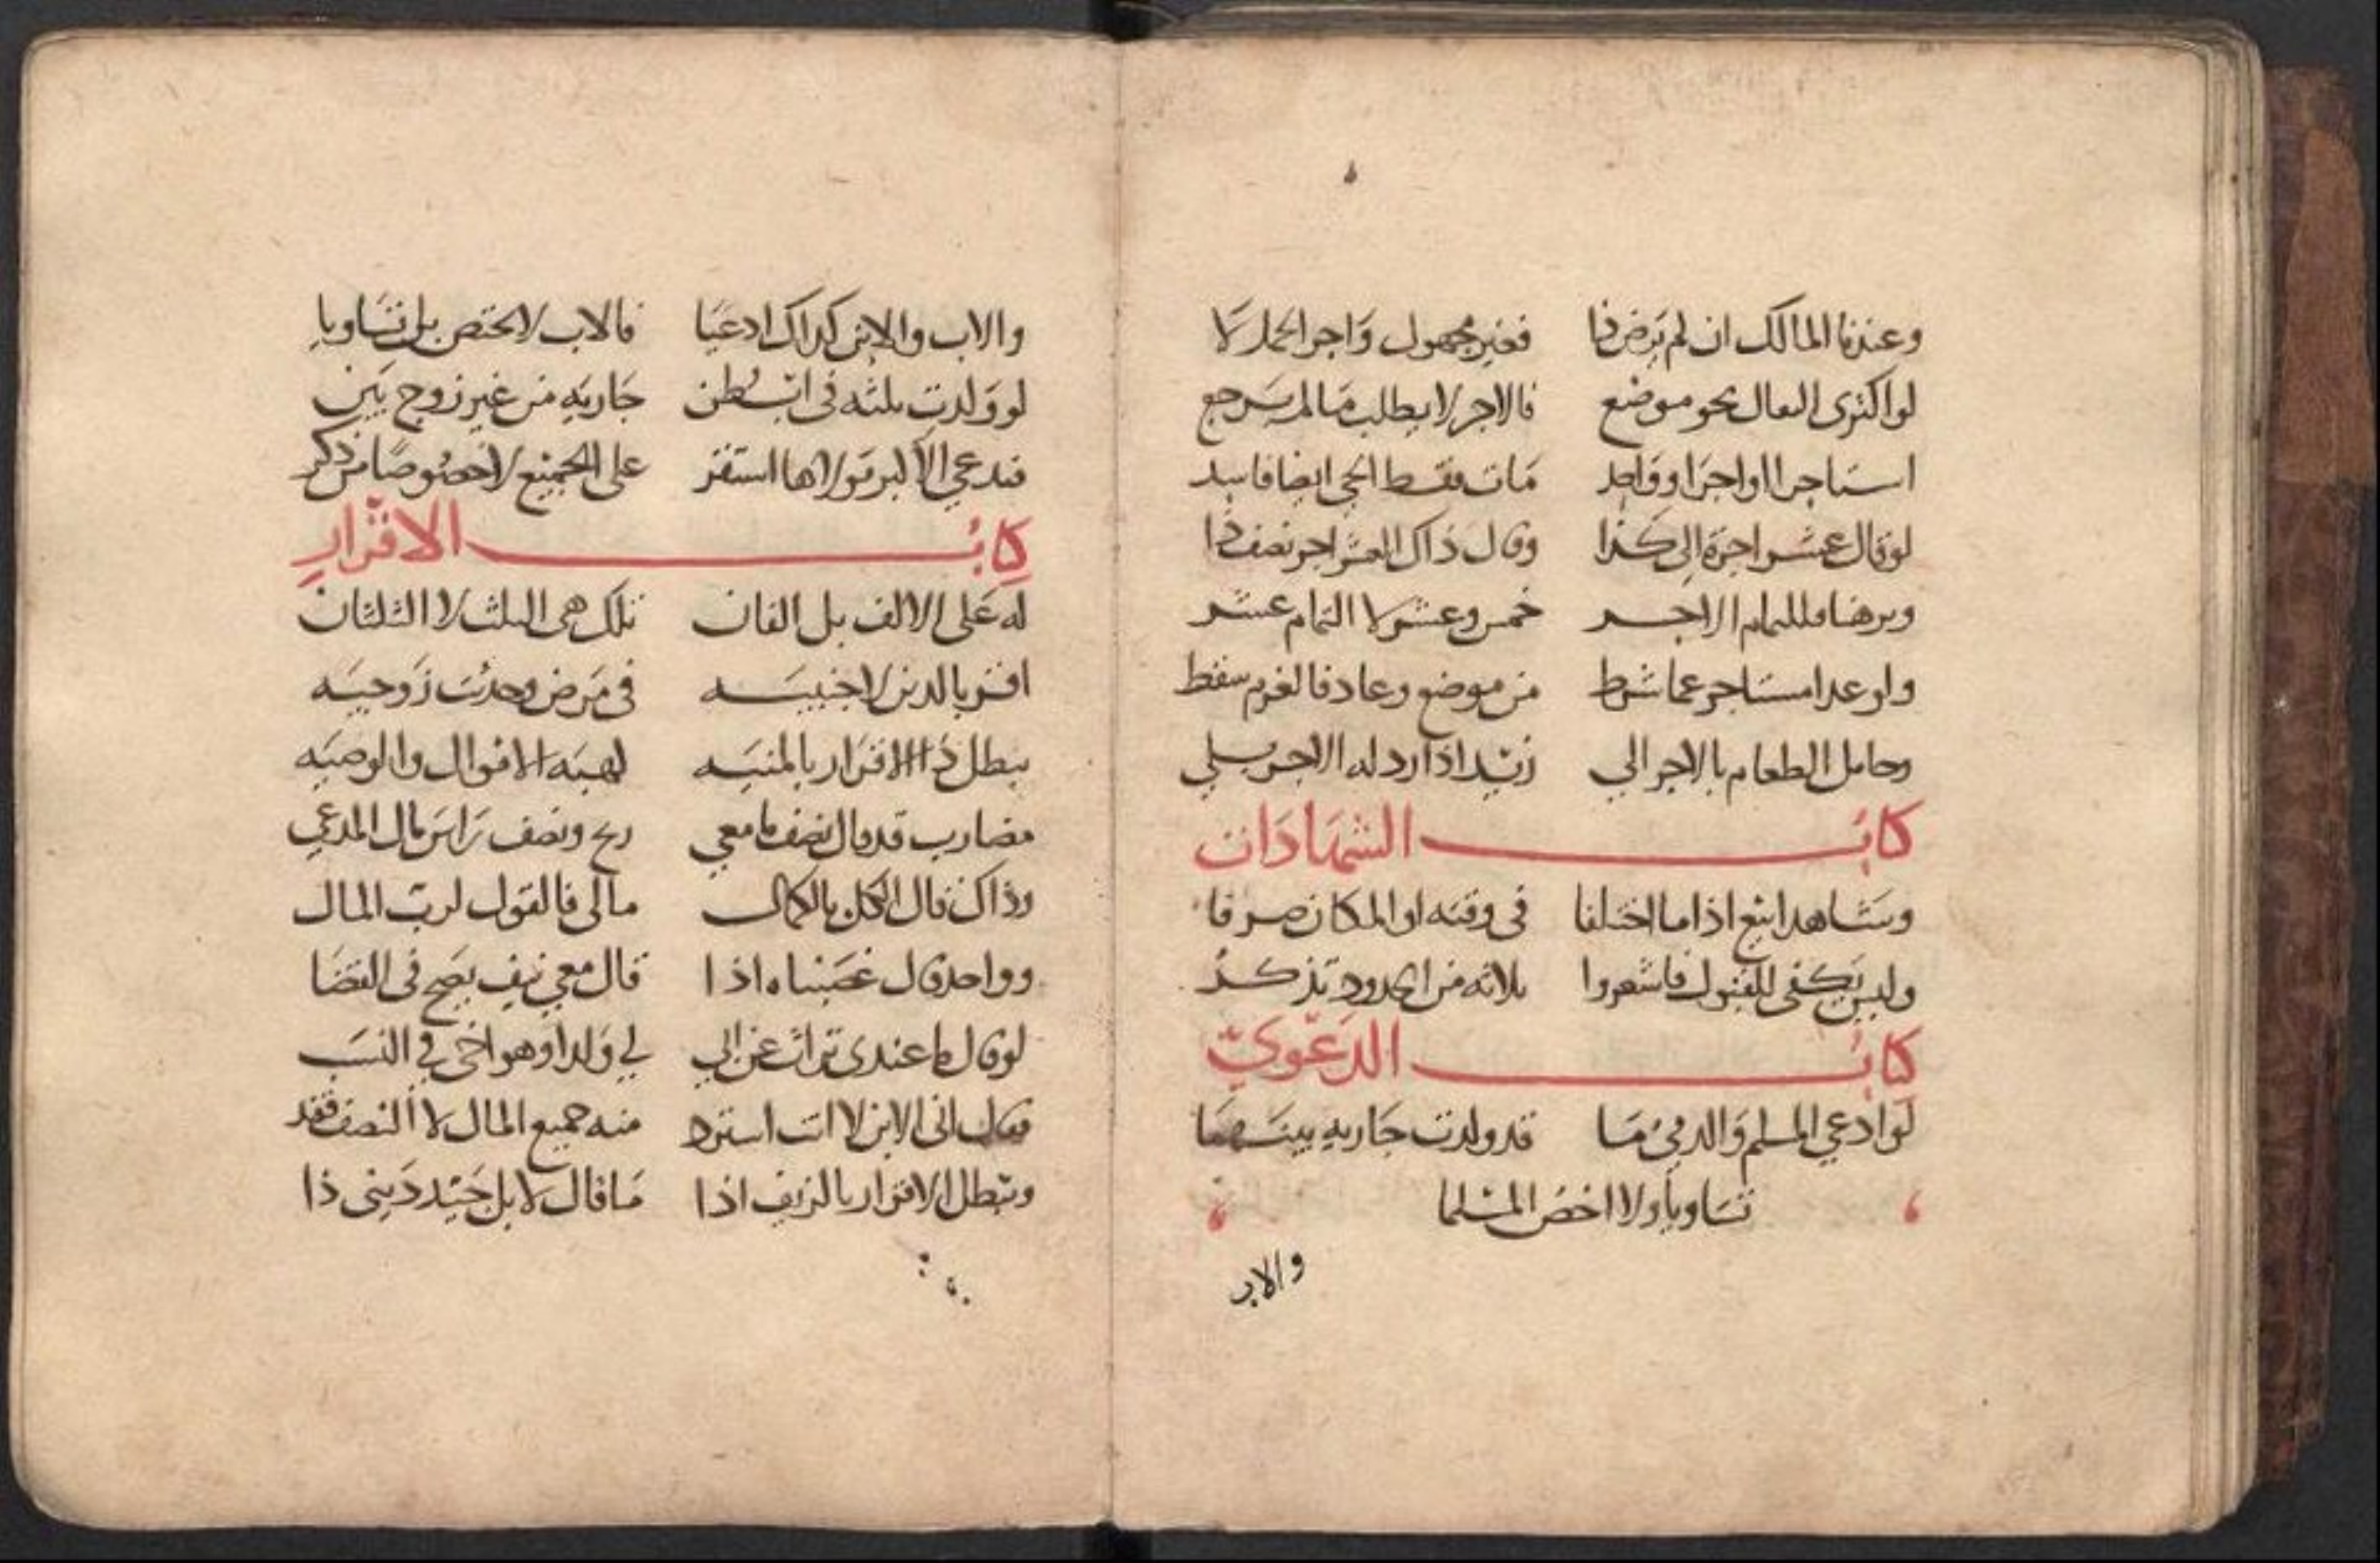 وعندنا المالك ان لم يرض ذا فغير مجهول واجر الحمل لا
لو اكترى البغال نحو موضع فالاجر لا يطلب ما لم يرجع
استاجرا او اجرا وواحد مات فقط الحي ايضا فاسد
لو قال عشر اجرة الى كذا وقال ذاك العشر اجر نصف ذا
وبرهنا الاجر خمس وعشر لا التمام عشر
ولو عدا مستاجر عما شرط من موضع وعاد فالغرم سقط
وحامل الطعام بالاجر الى زيد اذا رد له الاجر
كتاب الشهادات
وشاهدا بيع اذا ما اختلفا في وقته او المكان صرفا
وليس يكفي للقبول فاشعروا ثلاثة من الحدود تذكر
كتاب الدعوي
لو ادعي المسلم والدمي ما قد ولدت جارية بينهما
تساويا ولا اخص المسلما
والاب
والاب والابن كذاك ادعيا فالاب لا يختص بل تساويا
لو ولدت ثلثه في ابطن جاريه من غير زوج بين
فدعي الاكبر مولاها استقر على الجميع لا خصوصا من ذكر
كتاب الاقرار
له على الالف بل الفان تلك هي الثلث لا الثلثان
اقر بالدين لاجنبيه في مرض وحدثت زوجيه
يبطل ذا الاقرار بالمنيه لهبه الاموال والوصيه
مضارب قد قال نصف ما معي ربح ونصف راس مال المدعي
وذاك قال الكل بالكمال مالي فالقول لرب المال
وواحد قال غصبناه اذا قال معي نيف يصح في القضا
لو قال ما عندي تراث عن ابي لي ولدا وهو اخي في النسب
فقال اني الابن لا انت استرد منه جميع المال لا النصف فقد
ويبطل الاقرار بالزيف اذا ما قال لا بل جيد ديني ذا